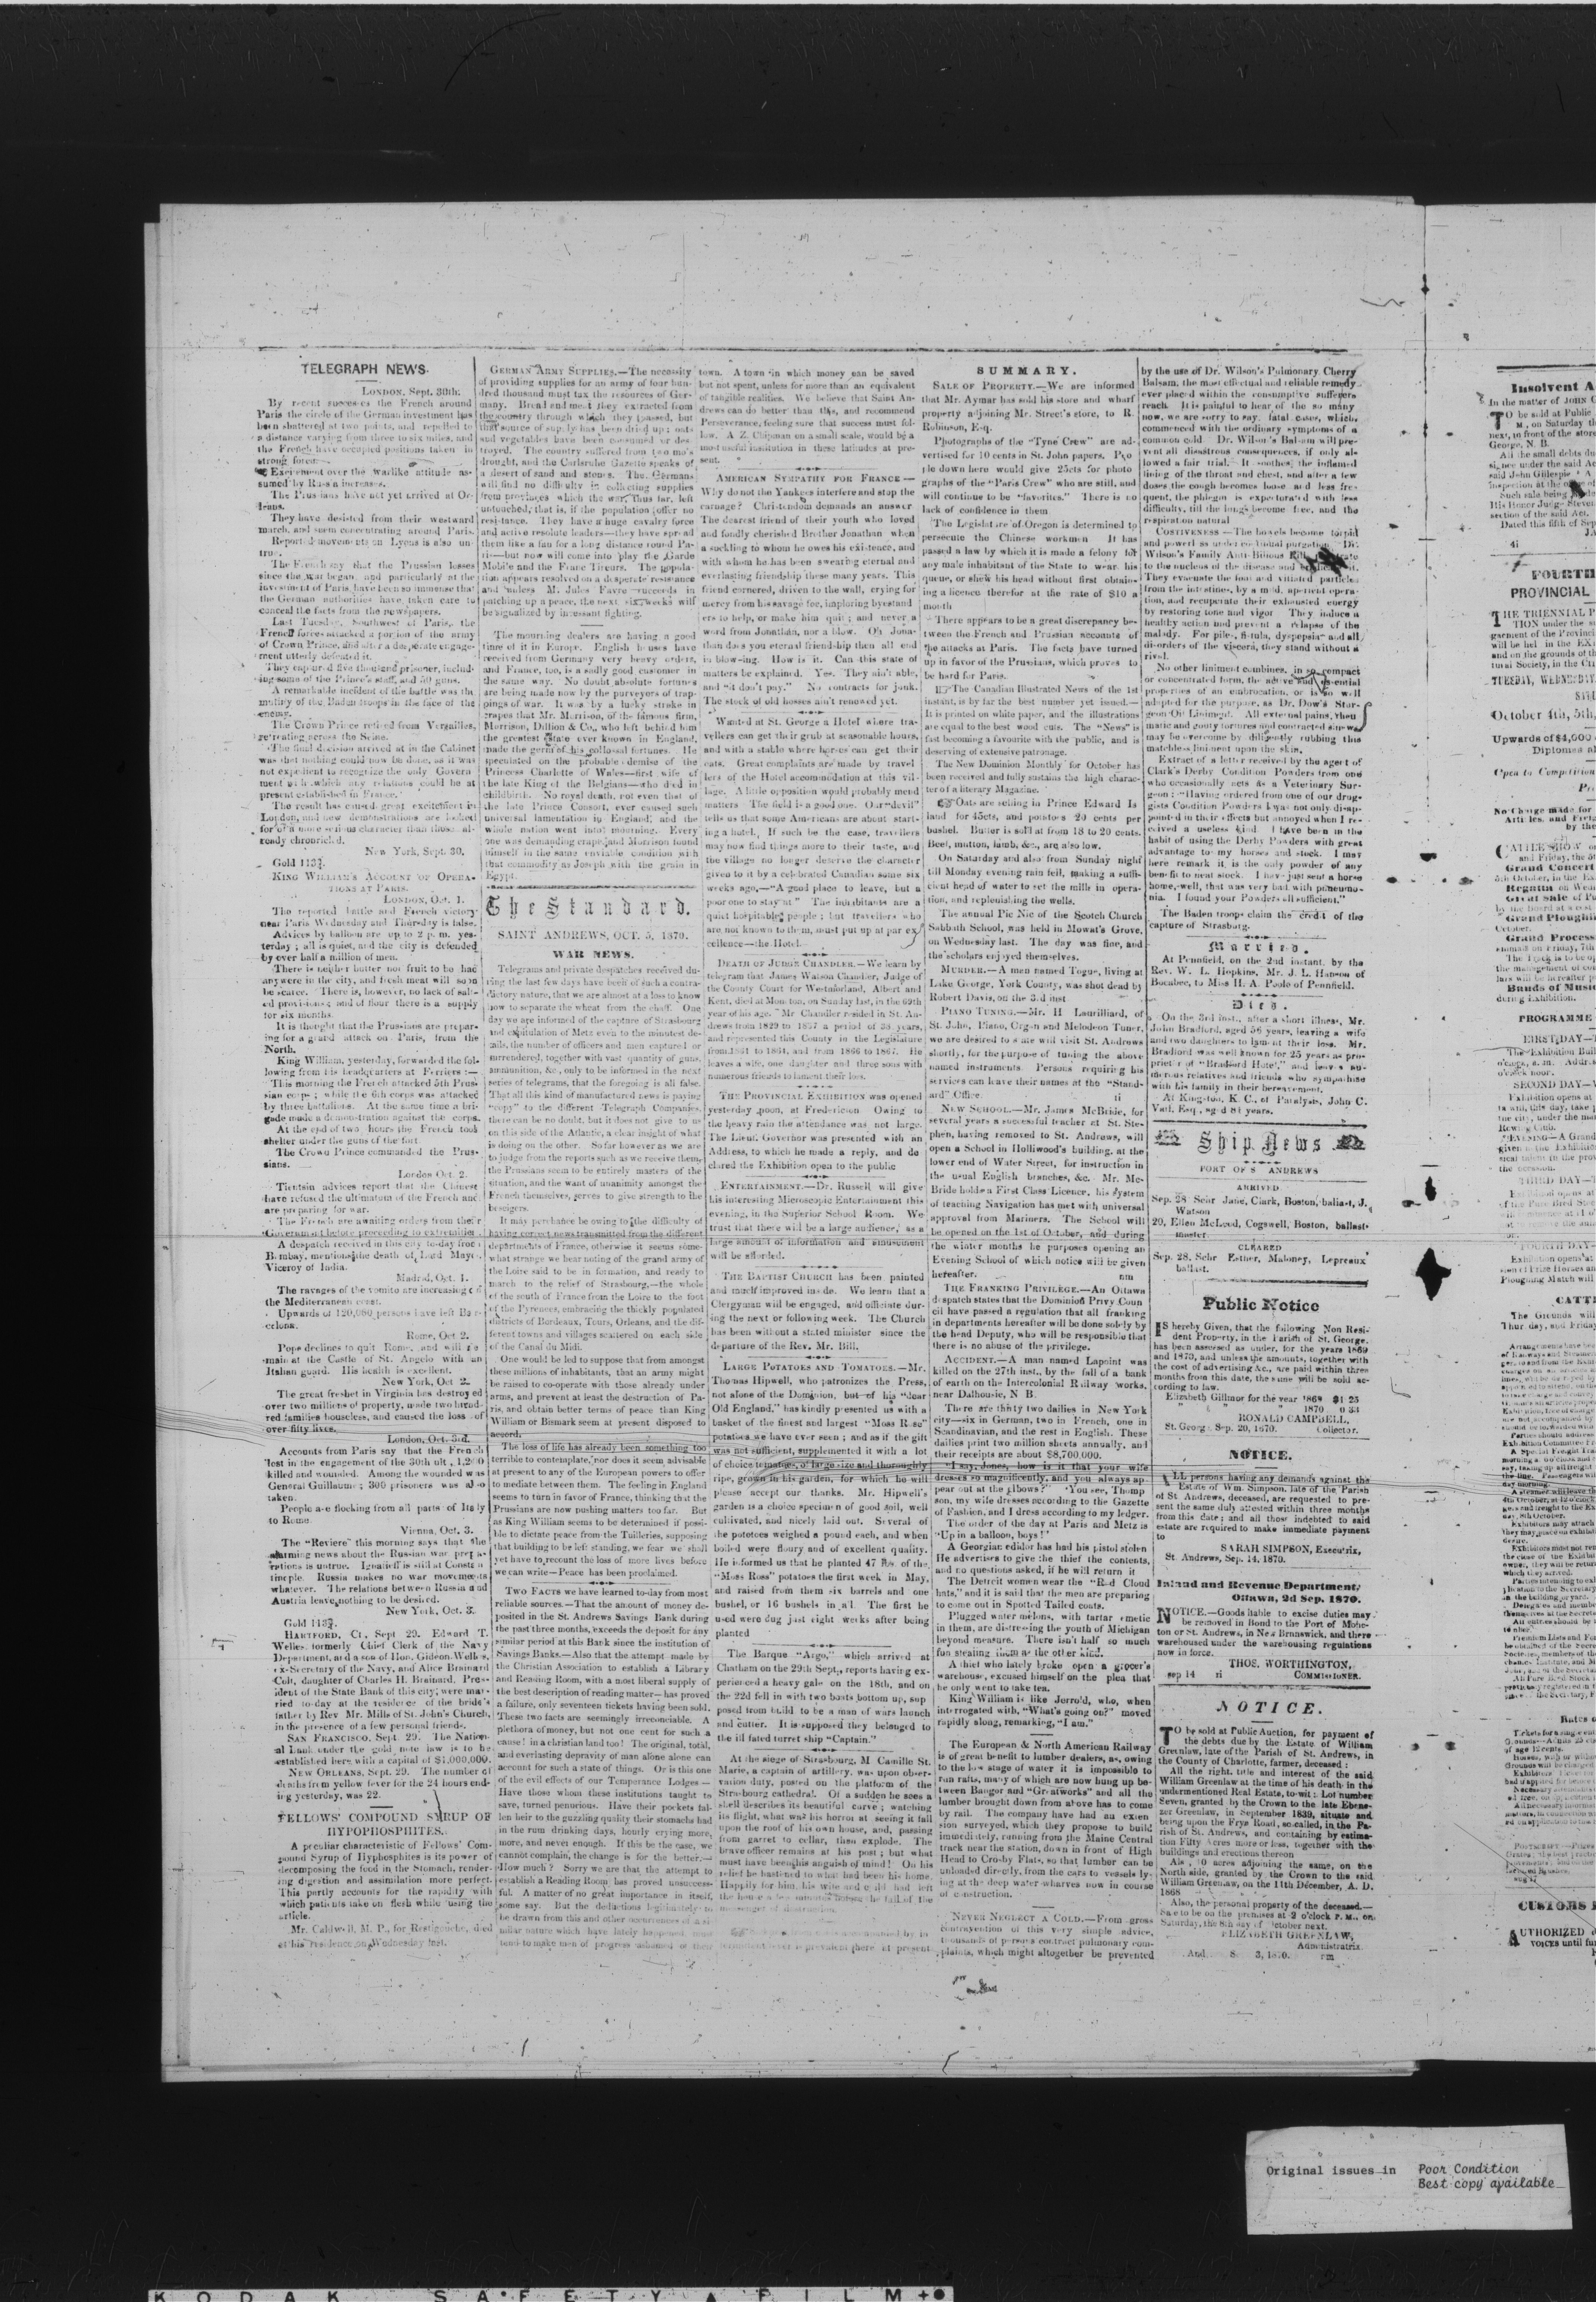 TELEGRAPH NEWS.
LONDON, Sept. 30th.
By recent successes the French around
Paris the circle of the German investment has
been shattered at two points, and repelled to
a distance varying from three to six miles, and
the French have occupied positions taken in
strong force.
Excitement over the warlike attitude as-
sumed by Russia increases.
The Prussians have not yet arrived at Or-
leans.
They have desisted from their westward
march, and seem concentrating around Paris.
Reported movements on Lyons is also un-
true.
The French say that the Prussian losses
since the war began, and particularly at the
investment of Paris, have been so immense that
the German authorities have taken care to
conceal the facts from the newspapers.
Last Tuesday, Southwest of Paris, the
French forces attacked a portion of the army
of Crown Prince, and after a desperate engage-
ment utterly defeated it.
They captured five thousand prisoner, includ-
ing some of the Prince's staff, and 50 guns.
A remarkable incident of the battle was the
mutiny of the Baden troops in the face of the
enemy.
The Crown Prince retired from Versailles,
retreating across the Seine.
The final decision arrived at in the Cabinet
was that nothing could now be done, as it was
not expedient to recognize the only Govern
ment with which any relations could be at
present established in France.
The result has caused great excitement in
London, and new demonstrations are looked
for of a more serious character than those al-
ready chronicled.
New York, Sept. 30.
Gold 113¾.
KING WILLIAM'S ACCOUNT OF OPERA-
TIONS AT PARIS.
LONDON, Oct. 1.
The reported battle and French victory
near Paris Wednesday and Thursday is false.
Advices by balloon are up to 2 p. m. yes-
terday; all is quiet, and the city is defended
by over half a million of men.
There is neither butter nor fruit to be had
anywere in the city, and fresh meat will soon
be scarce. There is, however, no lack of salt-
ed provisions; and of flour there is a supply
for six months.
It is thought that the Prussians are prepar-
ing for a grand attack on Paris, from the
North.
King William, yesterday, forwarded the fol-
lowing from his headquarters at Ferriers:—
This morning the French attacked 5th Prus-
sian corps; while the 6th corps was attacked
by three battalions. At the same time a bri-
gade made a demonstration against the corps.
At the end of two hours the French took
shelter under the guns of the fort
The Crown Prince commanded the Prus-
sians.
London Oct. 2.
Tientsin advices report that the Chinese
have refused the ultimatum of the French and
are preparing for war.
The French are awaiting orders from their
Government before proceeding to extremities
A despatch received in this city to-day from
Bombay, mentions the death of Lord Mayo,
Viceroy of India.
Madrid, Oct. 1.
The ravages of the vomito are increasing on
the Mediterranean coast.
Upwards of 120,000 persons have left Bar-
celona.
Rome, Oct 2.
Pope declines to quit Rome, and will re
main at the Castle of St. Angelo with an
Italian guard. His health is excellent.
New York, Oct 2.
The great freshet in Virginia has destroyed
over two millions of property, made two hund-
red families houseless, and caused the loss of
over fifty lives.
London, Oct. 3rd.
Accounts from Paris say that the French
lost in the engagement of the 30th ult, 1,200
killed and wounded. Among the wounded was
General Guillaume; 300 prisoners was also
taken.
People are flocking from all parts of Italy
to Rome.
Vienna, Oct. 3.
The "Reviere" this morning says that the
alarming news about the Russian war prepa-
rations is untrue. Ignatieff is still at Constan
tinople. Russia makes no war movements
whatever. The relations between Russia and
Austria leave nothing to be desired.
New York, Oct. 3.
Gold 113¾.
HARTFORD, Ct, Sept 29. Edward T.
Welles, formerly Chief Clerk of the Navy
Department, and a son of Hon. Gideon Welles,
ex-Secretary of the Navy, and Alice Brainard
Colt, daughter of Charles H. Brainard, Pres-
ident of the State Bank of this city, were mar-
ried to-day at the residence of the bride's
father by Rev Mr. Mills of St. John's Church,
in the presence of a few personal friends.
SAN FRANCISCO, Sept. 29. The Nation-
al bank under the gold note law is to be
established here with a capital of $1,000,000.
NEW ORLEANS, Sept. 29. The number of
deaths from yellow fever for the 24 hours end-
ing yesterday, was 22.
FELLOWS' COMPOUND SYRUP OF
HYPOPHOSPHITES.
A peculiar characteristic of Fellows' Com-
pound Syrup of Hyphosphites is its power of
decomposing the food in the Stomach, render-
ing digestion and assimilation more perfect.
This partly accounts for the rapidity with
which patients take on flesh while using the
article.
Mr. Caldwell, M. P., for Restigouche, died
at his residence on Wednesday last.
GERMAN ARMY SUPPLIES.—The necessity
of providing supplies for an army of four hun-
dred thousand must tax the resources of Ger-
many. Bread and meat they extracted from
the country through which they passed, but
that source of supply has been dried up; oats
and vegetables have been consumed or des-
troyed. The country suffered from two mo's
drought, and the Carlsruhe Gazette speaks of
a desert of sand and stones. The Germans
will find no difficulty in collecting supplies
from provinces which the war, thus far, left
untouched, that is, if the population offer no
resistance. They have a huge cavalry force
and active resolute leaders—they have spread
them like a fan for a long distance round Pa-
ris—but now will come into play the Garde
Mobile and the Franc Tireurs. The popula-
tion appears resolved on a desperate resistance
and unless M. Jules Favre succeeds in
patching up a peace, the next six weeks will
be signalized by incessant fighting.
The mourning dealers are having a good
time of it in Europe. English houses have
received from Germany very heavy orders,
and France, too, is a sadly good customer in
the same way. No doubt absolute fortunes
are being made now by the purveyors of trap-
pings of war. It was by a lucky stroke in
crapes that Mr. Morrison, of the famous firm,
Morrison, Dillion & Co., who left behind him
the greatest estate ever known in England,
made the germ of his collossal fortunes. He
speculated on the probable demise of the
Princess Charlotte of Wales—first wife of
the late King of the Belgians—who died in
childbirth. No royal death, not even that of
the late Prince Consort, ever caused such
universal lamentation in England, and the
whole nation went into mourning. Every
one was demanding crape, and Morrison found
himself in the same enviable condition with
that commodity as Joseph with the grain in
Egypt.
The Standard.
SAINT ANDREWS, OCT. 5, 1870.
WAR NEWS.
Telegrams and private despatches received du-
ring the last few days have been of such a contra-
dictory nature, that we are almost at a loss to know
how to separate the wheat from the chaff. One
day we are informed of the capture of Strasbourg
and capitulation of Metz even to the minutest de-
tails, the number of officers and men captured or
surrendered, together with vast quantity of guns,
ammunition, &c., only to be informed in the next
series of telegrams, that the foregoing is all false.
That all this kind of manufactured news is paying
"copy" to the different Telegraph Companies,
there can be no doubt, but it does not give to us
on this side of the Atlantic, a clear insight of what
is doing on the other. So far however as we are
to judge from the reports such as we receive them,
the Prussians seem to be entirely masters of the
situation, and the want of unanimity amongst the
French themselves, serves to give strength to the
beseigers.
It may perchance be owing to the difficulty of
having correct news transmitted from the different
departments of France, otherwise it seems some-
what strange we hear noting of the grand army of
the Loire said to be in formation, and ready to
march to the relief of Strasbourg,—the whole
of the south of France from the Loire to the foot
of the Pyrences, embracing the thickly populated
districts of Bordeaux, Tours, Orleans, and the dif-
ferent towns and villages scattered on each side
of the Canal du Midi.
One would be led to suppose that from amongst
these millions of inhabitants, that an army might
be raised to co-operate with those already under
arms, and prevent at least the destruction of Pa-
ris, and obtain better terms of peace than King
William or Bismark seem at present disposed to
accord.
The loss of life has already been something too
terrible to contemplate, nor does it seem advisable
at present to any of the European powers to offer
to mediate between them. The feeling in England
seems to turn in favor of France, thinking that the
Prussians are now pushing matters too far. But
as King William seems to be determined if possi-
ble to dictate peace from the Tuilleries, supposing
that building to be left standing, we fear we shall
yet have to recount the loss of more lives before
we can write—Peace has been proclaimed.
TWO FACTS we have learned to-day from most
reliable sources.—That the amount of money de-
posited in the St. Andrews Savings Bank during
the past three months, exceeds the deposit for any
similar period at this Bank since the institution of
Savings Banks.—Also that the attempt made by
the Christian Association to establish a Library
and Reading Room, with a most liberal supply of
the best description of reading matter—has proved
a failure, only seventeen tickets having been sold.
These two facts are seemingly irreconciable. A
plethora of money, but not one cent for such a
cause! in a christian land too! The original, total,
and everlasting depravity of man alone alone can
account for such a state of things. Or is this one
of the evil effects of our Temperance Lodges—
Have those whom these institutions taught to
save, turned penurious. Have their pockets fal-
len heir to the guzzling quality their stomachs had
in the rum drinking days, hourly crying more,
more, and never enough. If this be the case, we
cannot complain, the change is for the better.—
How much? Sorry we are that the attempt to
establish a Reading Room has proved unsuccess-
ful. A matter of no great importance in itself,
some say. But the deductions legitimately to
be drawn from this and other occurrences of a si
milar nature which have lately happened, must
tend to make men of progress ashamed of their
town. A town in which money can be saved
but not spent, unless for more than an equivalent
of tangible realities. We believe that Saint An-
drews can do better than this, and recommend
Perseverance, feeling sure that success must fol-
low. A Z. Chipman on a small scale, would be a
most useful institution in these latitudes at pre-
sent.
AMERICAN SYMPATHY FOR FRANCE—
Why do not the Yankees interfere and stop the
carnage? Christendom demands an answer
The dearest friend of their youth who loved
and fondly cherished Brother Jonathan when
a suckling to whom he owes his existence, and
with whom he has been swearing eternal and
everlasting friendship these many years. This
friend cornered, driven to the wall, crying for
mercy from his savage foe, imploring byestand
ers to help, or make him quit; and never a
word from Jonathan, nor a blow. Oh Jona-
than does you eternal friendship then all end
in blow-ing. How is it. Can this state of
matters be explained. Yes. They ain't able,
and "it don't pay." No contracts for junk.
The stock of old hosses ain't renewed yet.
Wanted at St. George a Hotel where tra-
vellers can get their grub at seasonable hours,
and with a stable where horses can get their
oats. Great complaints are made by travel
lers of the Hotel accommodation at this vil-
lage. A little opposition would probably mend
matters The field is a good one. Our "devil"
tells us that some Americans are about start-
ing a hotel. If such be the case, travellers
may now find things more to their taste, and
the village no longer deserve the character
given to it by a celebrated Canadian some six
weeks ago,—"A good place to leave, but a
poor one to stay at" The inhabitants are a
quiet hospitable people; but travellers who
are not known to them, must put up at par ex
cellence—the Hotel.
DEATH OF JUDGE CHANDLER.—We learn by
telegram that James Watson Chandler, Judge of
the County Court for Westmorland, Albert and
Kent, died at Moncton, on Sunday last, in the 69th
year of his age. Mr Chandler resided in St. An-
drews from 1829 to 1867 a period of 38 years,
and represented this County in the Legislature
from 1851 to 1861, and from 1866 to 1867. He
leaves a wife, one daughter and three sons with
numerous friends to lament their loss.
THE PROVINCIAL EXHIBITION was opened
yesterday noon, at Fredericton Owing to
the heavy rain the attendance was not large.
The Lieut. Governor was presented with an
Address, to which he made a reply, and de
clared the Exhibition open to the public
ENTERTAINMENT.—Dr. Russell will give
his interesting Microscopic Entertainment this
evening, in the Superior School Room. We
trust that there will be a large audience, as a
large amount of information and amusement
will be afforded.
THE BAPTIST CHURCH has been painted
and much improved inside. We learn that a
Clergyman will be engaged, and officiate dur-
ing the next or following week. The Church
has been without a stated minister since the
departure of the Rev. Mr. Bill.
LARGE POTATOES AND TOMATOES.—Mr.
Thomas Hipwell, who patronizes the Press,
not alone of the Dominion, but of his "dear
Old England," has kindly presented us with a
basket of the finest and largest "Moss Rose"
potatoes we have ever seen; and as if the gift
was not sufficient, supplemented it with a lot
of choice tomatoes, of large size and thoroughly
ripe, grown in his garden, for which he will
please accept our thanks. Mr. Hipwell's
garden is a choice specimen of good soil, well
cultivated, and nicely laid out. Several of
the potatoes weighed a pound each, and when
boiled were floury and of excellent quality.
He informed us that he planted 47 lbs. of the
"Moss Ross" potatoes the first week in May,
and raised from them six barrels and one
bushel, or 16 bushels in all. The first he
used were dug just eight weeks after being
planted
The Barque "Argo," which arrived at
Chatham on the 29th Sept., reports having ex-
perienced a heavy gale on the 18th, and on
the 22d fell in with two boats bottom up, sup
posed from build to be a man of wars launch
and cutter. It is supposed they belonged to
the ill fated turret ship "Captain."
At the siege of Strasbourg, M Camille St.
Marie, a captain of artillery, was upon obser-
vation duty, posted on the platform of the
Strasbourg cathedral. Of a sudden he sees a
shell describes its beautiful curve; watching
its flight, what was his horror at seeing it fall
upon the roof of his own house, and, passing
from garret to cellar, then explode. The
brave officer remains at his post; but what
must have been his anguish of mind! On his
relief he hastened to what had been his home.
Happily for him, his wife and child had left
the house a few minutes before the fall of the
messenger of destruction.
SUMMARY.
SALE OF PROPERTY.—We are informed
that Mr. Aymar has sold his store and wharf
property adjoining Mr. Street's store, to R.
Robinson, Esq.
Photographs of the "Tyne Crew" are ad-
vertised for 10 cents in St. John papers. Peo
ple down here would give 25cts for photo
graphs of the "Paris Crew" who are still, and
will continue to be "favorites." There is no
lack of confidence in them
The Legislature of Oregon is determined to
persecute the Chinese workmen It has
passed a law by which it is made a felony for
any male inhabitant of the State to wear his
queue, or shew his head without first obtain-
ing a licence therefor at the rate of $10 a
month
There appears to be a great discrepancy be-
tween the French and Prussian accounts of
the attacks at Paris. The facts have turned
up in favor of the Prussians, which proves to
be hard for Paris.
The Canadian Illustrated News of the 1st
instant, is by far the best number yet issued.—
It is printed on white paper, and the illustrations
are equal to the best wood cuts. The "News" is
fast becoming a favourite with the public, and is
deserving of extensive patronage.
The New Dominion Monthly for October has
been received and fully sustains the high charac-
ter of a literary Magazine.
Oats are selling in Prince Edward Is
land for 45cts, and potatoes 20 cents per
bushel. Butter is sold at from 18 to 20 cents.
Beef, mutton, lamb, &c., are also low.
On Saturday and also from Sunday night
till Monday evening rain fell, making a suffi-
cient head of water to set the mills in opera-
tion, and replenishing the wells.
The annual Pic Nic of the Scotch Church
Sabbath School, was held in Mowat's Grove,
on Wednesday last. The day was fine, and
the scholars enjoyed themselves.
MURDER.—A man named Togue, living at
Lake George, York County, was shot dead by
Robert Davis, on the 3d inst
PIANO TUNING.—Mr. H Laurilliard, of
St. John, Piano, Organ and Melodeon Tuner,
we are desired to state will visit St. Andrews
shortly, for the purpose of tuning the above
named instruments. Persons requiring his
services can leave their names at the "Stand-
ard" Office. ti
NEW SCHOOL.—Mr. James McBride, for
several years a successful teacher at St. Ste-
phen, having removed to St. Andrews, will
open a School in Holliwood's building, at the
lower end of Water Street, for instruction in
the usual English branches, &c. Mr. Mc-
Bride holds a First Class Licence, his system
of teaching Navigation has met with universal
approval from Mariners. The School will
be opened on the 1st of October, and during
the winter months he purposes opening an
Evening School of which notice will be given
hereafter. nm
THE FRANKING PRIVILEGE.—An Ottawa
despatch states that the Dominion Privy Coun
cil have passed a regulation that all franking
in departments hereafter will be done solely by
the head Deputy, who will be responsible that
there is no abuse of the privilege.
ACCIDENT.—A man named Lapoint was
killed on the 27th inst., by the fall of a bank
of earth on the Intercolonial Railway works,
near Dalhousie, N B.
There are thirty two dailies in New York
city—six in German, two in French, one in
Scandinavian, and the rest in English. These
dailies print two million sheets annually, and
their receipts are about $8,700,000.
"I say, Jones, how is it that your wife
dresses so magnificently, and you always ap-
pear out at the elbows?" "You see, Thomp
son, my wife dresses according to the Gazette
of Fashion, and I dress according to my ledger.
The order of the day at Paris and Metz is
"Up in a balloon, boys!"
A Georgian edidor has had his pistol stolen
He advertises to give the thief the contents,
and no questions asked, if he will return it
The Detroit women wear the "Red Cloud
hats," and it is said that the men are preparing
to come out in Spotted Tailed coats.
Plugged water melons, with tartar emetic
in them, are distressing the youth of Michigan
beyond measure. There isn't half so much
fun stealing them as the other kind.
A thief who lately broke open a grocer's
warehouse, excused himself on the plea that
he only went to take tea.
King William is like Jerrold, who, when
interrogated with, "What's going on?" moved
rapidly along, remarking, "I am."
The European & North American Railway
is of great benefit to lumber dealers, as, owing
to the low stage of water it is impossible to
run rafts, many of which are now hung up be-
tween Bangor and "Greatworks" and all the
lumber brought down from above has to come
by rail. The company have had an exten
sion surveyed, which they propose to build
immediately, running from the Maine Central
track near the station, down in front of High
Head to Crosby Flats, so that lumber can be
unloaded directly, from the cars to vessels ly-
ing at the deep water wharves now in course
of construction.
NEVER NEGLECT A COLD.—From gross
contravention of this very simple advice,
thousands of persons contract pulmonary com-
plaints, which might altogether be prevented
by the use of Dr. Wilson's Pulmonary Cherry
Balsam, the most effectual and reliable remedy
ever placed within the consumptive sufferers
reach. It is painful to hear of the so many
now, we are sorry to say, fatal cases, which,
commenced with the ordinary symptoms of a
common cold. Dr. Wilson's Balsam will pre-
vent all disastrous consequences, if only al-
lowed a fair trial. It soothes the inflamed
lining of the throat and chest, and after a few
doses the cough becomes loose and less fre-
quent, the phlegm is expectorated with less
difficulty, till the lungs become free, and the
respiration natural
COSTIVENESS—The bowels become torpid
and powerless under continual purgation Dr.
Wilson's Family Anti-Bilious
to the nucleus of the disease and
They evacuate the foul and vitiated particles
from the intestines, by a mild, aperient opera-
tion, and recuperate their exhausted energy
by restoring tone and vigor They induce a
healthy action and prevent a relapse of the
malady. For piles, fistula, dyspepsia and all
disorders of the viscera, they stand without a
rival.
No other liniment combines, in so compact
or concentrated form, the active and essential
properties of an embrocation, or is so well
adapted for the purpose, as Dr. Dow's Stur-
geon Oil Liniment. All external pains, rheu
matic and gouty tortures and contracted sinews
may be overcome by diligently rubbing this
matchless liniment upon the skin.
Extract of a letter received by the agent of
Clark's Derby Condition Powders from one
who occasionally acts as a Veterinary Sur-
geon: "Having ordered from one of our drug-
gists Condition Powders I was not only disap-
pointed in their effects but annoyed when I re-
ceived a useless kind I have been in the
habit of using the Derby Powders with great
advantage to my horses and stock. I may
here remark it is the only powder of any
benefit to neat stock. I have just sent a horse
home, well, that was very bad with pneumo-
nia. I found your Powders all sufficient."
The Baden troops claim the credit of the
capture of Strasburg.
Married.
At Pennfield, on the 2nd instant, by the
Rev. W. L. Hopkins, Mr. J. L. Hanson of
Bocabec, to Miss H. A. Poole of Pennfield.
Died.
On the 3rd inst., after a short illness, Mr.
John Bradford, aged 56 years, leaving a wife
and two daughters to lament their loss. Mr.
Bradford was well known for 25 years as pro-
prietor of "Bradford Hotel," and leaves nu-
merous relatives and friends who sympathise
with his family in their bereavement.
At Kingston, K. C., of Paralysis, John C.
Vail, Esq., aged 81 years.
Ship News
PORT OF S ANDREWS
ARRIVED
Sep. 28 Schr Jane, Clark, Boston, balast, J.
Watson
29, Ellen McLeod, Cogswell, Boston, ballast
master.
CLEARED
Sep. 28. Schr Esther, Maloney, Lepreaux
ballast.
Public Notice
IS hereby Given, that the following Non Resi-
dent Property, in the Parish of St. George,
has been assessed as under, for the years 1869
and 1870, and unless the amounts, together with
the cost of advertising &c., are paid within three
months from this date, the same will be sold ac-
cording to law.
Elizabeth Gillmor for the year 1869 $1 25
" " " 1870 0 33
RONALD CAMPBELL,
St. George Sep. 20, 1870. Collector.
NOTICE.
ALL persons having any demands against the
Estate of Wm. Simpson, late of the Parish
of St. Andrews, deceased, are requested to pre-
sent the same duly attested within three months
from this date; and all those indebted to said
estate are required to make immediate payment
to
SARAH SIMPSON, Executrix,
St. Andrews, Sep. 14, 1870.
Inland and Revenue Department,
Ottawa, 2d Sep. 1870.
NOTICE.—Goods liable to excise duties may
be removed in Bond to the Port of Monc-
ton or St. Andrews, in New Brunswick, and there
warehoused under the warehousing regulations
now in force.
THOS. WORTHINGTON,
sep 14 ri COMMISSIONER.
NOTICE.
TO be sold at Public Auction, for payment of
the debts due by the Estate of William
Greenlaw, late of the Parish of St. Andrews, in
the County of Charlotte, farmer, deceased:
All the right, title and interest of the said
William Greenlaw at the time of his death in the
undermentioned Real Estate, to-wit: Lot number
Seven, granted by the Crown to the late Ebene-
zer Greenlaw, in September 1839, situate and
being upon the Frye Road, so called, in the Pa-
rish of St. Andrews, and containing by estima-
tion Fifty Acres more or less, together with the
buildings and erections thereon
Als, 10 acres adjoining the same, on the
North side, granted by the Crown to the said
William Greenlaw, on the 11th December, A. D.
1868
Also, the personal property of the deceased.—
Sale to be on the premises at 2 o'clock P. M., on
Saturday, the 8th day of October next.
ELIZABETH GREENLAW,
Administratrix
And. S 3, 1870. rm
Insolvent A
In the matter of JOHN G
TO be sold at Public
M, on Saturday th
next, in front of the store
George, N. B.
FOURTH
PROVINCIAL
THE TRIENNIAL P
TION under the
TUESDAY, WEDNESDAY
October 4th, 5th,
Upwards of $4,000
Diplomas a
Open to Competition
No Charge made for
Articles, and Freig
by the
CATTLE SHOW on
and Friday, the 5t
Grand Concert
Regatta on Wed
Great sale of Fu
Grand Ploughi
October.
Grand Process
Bands of Music
during Exhibition.
PROGRAMME
FIRST DAY—T
SECOND DAY—
EVENING—A Grand
THIRD DAY—
FOURTH DAY—
Ploughing Match will
CATTL
The Grounds will
Thursday, and Friday
Rates o
CUSTOMS
AUTHORIZED
VOICES until fur
Original issues in Poor Condition
Best copy available
KODAK SAFETY FILM